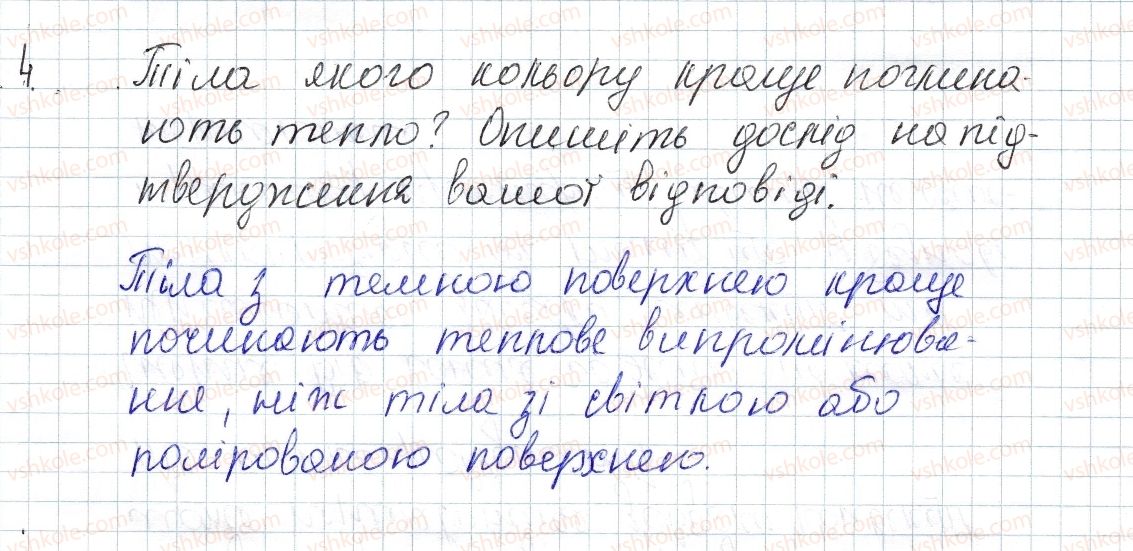 4. Тіла якого кольору краще поглина-
ють тепло? Опишіть дослід на під-
твердження вашої відповіді.
Тіла з темною поверхнею краще
поглинають теплове випромінюва-
ння, ніж тіла зі світлою або
полірованою поверхнею.